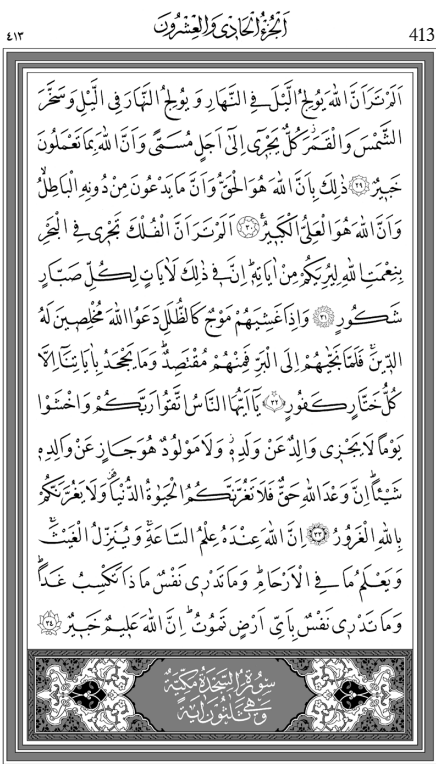 اَلْجُزْءُ الْحَادِي وَالْعِشْرُونَ
٤١٣ 413
اَلَمْ تَرَ اَنَّ اللّٰهَ يُولِجُ الَّيْلَ فِي النَّهَارِ وَيُولِجُ النَّهَارَ فِي الَّيْلِ وَسَخَّرَ
الشَّمْسَ وَالْقَمَرَ كُلٌّ يَجْرٖي اِلٰٓى اَجَلٍ مُسَمًّى وَاَنَّ اللّٰهَ بِمَا تَعْمَلُونَ
خَبٖيرٌ ﴿٢٩﴾ ذٰلِكَ بِاَنَّ اللّٰهَ هُوَ الْحَقُّ وَاَنَّ مَا يَدْعُونَ مِنْ دُونِهِ الْبَاطِلُ
وَاَنَّ اللّٰهَ هُوَ الْعَلِيُّ الْكَبٖيرُ ﴿٣٠﴾ اَلَمْ تَرَ اَنَّ الْفُلْكَ تَجْرٖي فِي الْبَحْرِ
بِنِعْمَتِ اللّٰهِ لِيُرِيَكُمْ مِنْ اٰيَاتِهٖ اِنَّ فٖي ذٰلِكَ لَاٰيَاتٍ لِكُلِّ صَبَّارٍ
شَكُورٍ ﴿٣١﴾ وَاِذَا غَشِيَهُمْ مَوْجٌ كَالظُّلَلِ دَعَوُا اللّٰهَ مُخْلِصٖينَ لَهُ
الدّٖينَ فَلَمَّا نَجّٰيهُمْ اِلَى الْبَرِّ فَمِنْهُمْ مُقْتَصِدٌ وَمَا يَجْحَدُ بِاٰيَاتِنَٓا اِلَّا
كُلُّ خَتَّارٍ كَفُورٍ ﴿٣٢﴾ يَٓا اَيُّهَا النَّاسُ اتَّقُوا رَبَّكُمْ وَاخْشَوْا
يَوْمًا لَا يَجْزٖي وَالِدٌ عَنْ وَلَدِهٖ وَلَا مَوْلُودٌ هُوَ جَازٍ عَنْ وَالِدِهٖ
شَيْـًٔا اِنَّ وَعْدَ اللّٰهِ حَقٌّ فَلَا تَغُرَّنَّكُمُ الْحَيٰوةُ الدُّنْيَا وَلَا يَغُرَّنَّكُمْ
بِاللّٰهِ الْغَرُورُ ﴿٣٣﴾ اِنَّ اللّٰهَ عِنْدَهُ عِلْمُ السَّاعَةِ وَيُنَزِّلُ الْغَيْثَ
وَيَعْلَمُ مَا فِي الْاَرْحَامِ وَمَا تَدْرٖي نَفْسٌ مَاذَا تَكْسِبُ غَدًا
وَمَا تَدْرٖي نَفْسٌ بِاَيِّ اَرْضٍ تَمُوتُ اِنَّ اللّٰهَ عَلٖيمٌ خَبٖيرٌ ﴿٣٤﴾
سُورَةُ السَّجْدَةِ مَكِّيَّةٌ
وَهِيَ ثَلٰثُونَ اٰيَةً